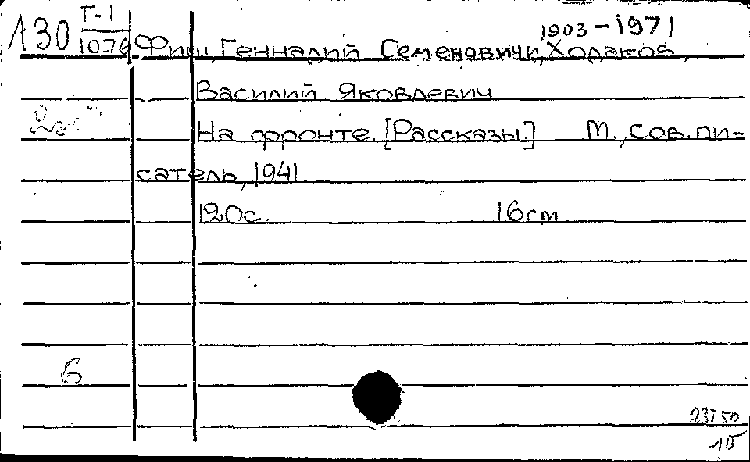 1903-1971
А30 Т-1/1076 Фиш, Геннадий Семенович, Ходаков,
Василий Яковлевич
На фронте. [Рассказы.] М., Сов. пи-
сатель, 1941
120с. 16см
6
23750
15